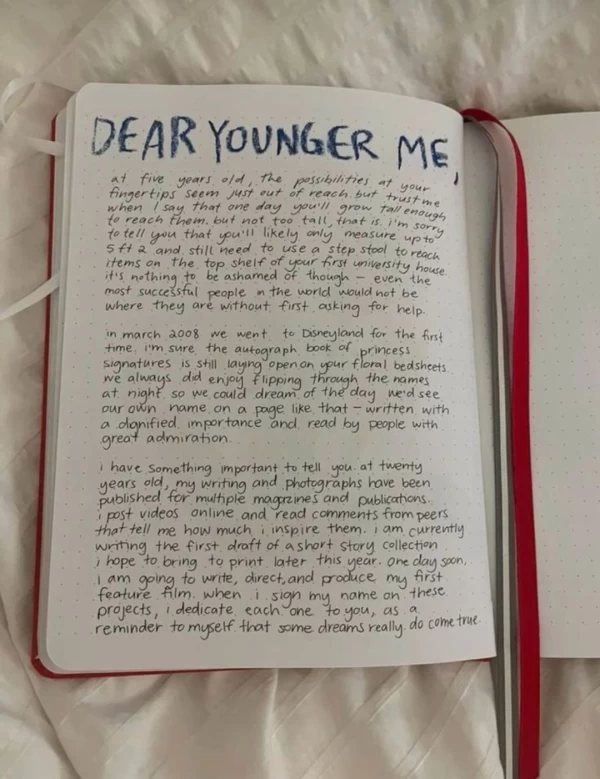 DEAR YOUNGER ME,
at five years old, the possibilities at your
fingertips seem just out of reach. but trust me
when i say that one day you'll grow tall enough
to reach them. but not too tall, that is. i'm sorry
to tell you that you'll likely only measure up to
5 ft 2 and still need to use a step stool to reach
items on the top shelf of your first university house.
it's nothing to be ashamed of though – even the
most successful people in the world would not be
where they are without first asking for help.
in march 2008 we went to Disneyland for the first
time. i'm sure the autograph book of princess
signatures is still laying open on your floral bedsheets.
we always did enjoy flipping through the names
at night so we could dream of the day we'd see
our own name on a page like that – written with
a dignified importance and read by people with
great admiration.
i have something important to tell you. at twenty
years old, my writing and photographs have been
published for multiple magazines and publications.
i post videos online and read comments from peers
that tell me how much i inspire them. i am currently
writing the first draft of a short story collection
i hope to bring to print later this year. one day soon,
i am going to write, direct, and produce my first
feature film. when i sign my name on these
projects, i dedicate each one to you, as a
reminder to myself that some dreams really do come true.